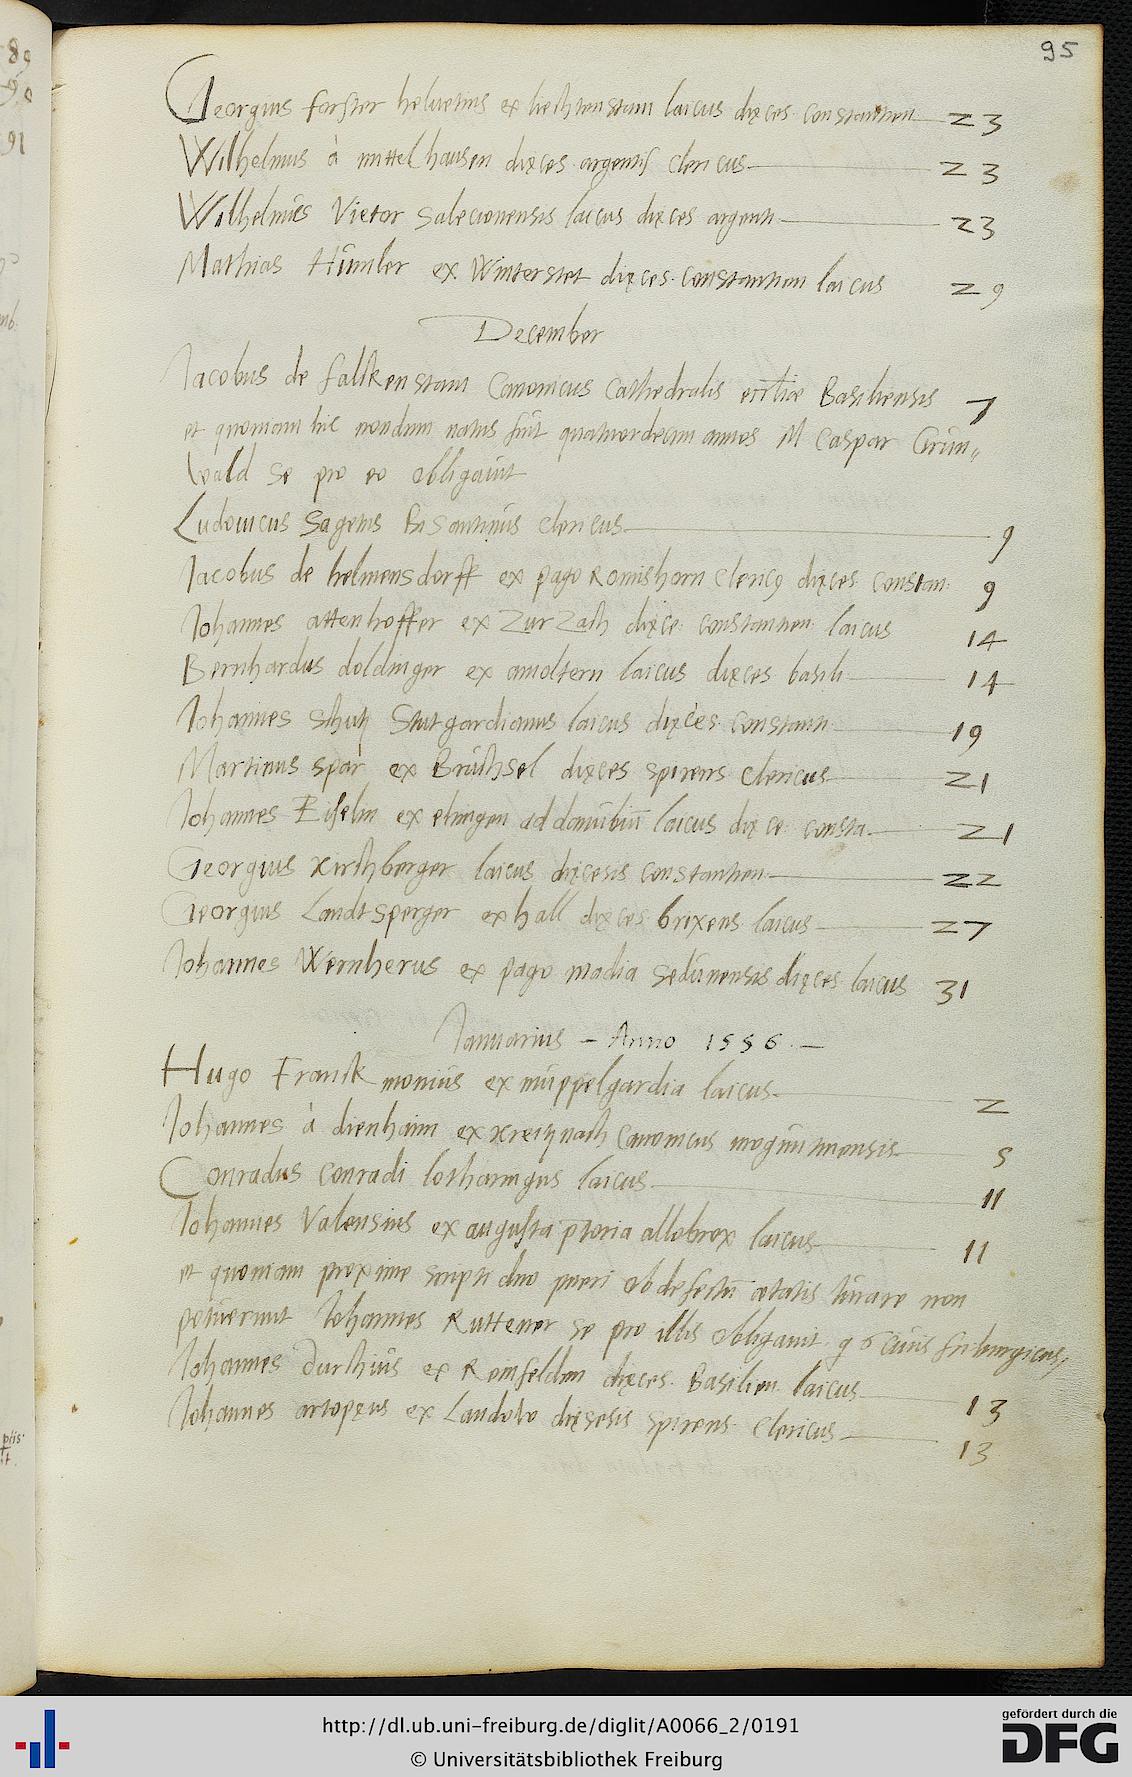 95
Georgius forster heluetius ex liechtenstain laicus dięces constantien 23
Wilhelmus à mittelhausen dięces argentiß clericus 23
Wilhelmus Vietor salecionensis laicus dięces argenti 23
Mathias Himler ex Winterstet dięces constantien laicus 29
December
Iacobus de falkenstain Canonicus Cathedralis eccliae Basiliensis 7
et quoniam hic nondum natus fuit quatuordecim annos M Caspar Grün„
wald se pro eo obligauit
Ludouicus sagetus Bisantinus clericus 9
Iacobus de helmensdorff ex pago Romishorn clericꝫ dięces constan: 9
Iohannes attenhoffer ex Zurzach dięce: constantien: laicus 14
Bernhardus doldinger ex amoltern laicus dięces basili 14
Iohannes schutz Stutgardianus laicus dięces constanti 19
Martinus spar ex Brüchsel dięces spirens clericus 21
Iohannes Eiselin ex ehingen ad danubiū laicus dięce: consta. 21
Georgius Kirchberger laicus dięcesis constantien 22
Georgius Landtsperger ex hall dięces brixens laicus 27
Iohannes Wernherus ex pago madia sedunensis dięces laicus 31
Ianuarius – Anno 1556. –
Hugo Franck monius ex müppelgardia laicus 2
Iohannes à dienhaim ex Kreitznach Canonicus moguntinensis 5
Conradus conradi lotharingus laicus 11
Iohannes Valensius ex augusta ptoria allobrox laicus 11
et quoniam proxime scripti duo pueri ob defectū ætatis iurare non
potuerunt Iohannes Ruttener se pro illis obligauit ciuis friburgicus,
Iohannes durchius ex Reinfelden dięces. Basilien laicus 13
Iohannes artopęus ex Landow dięcesis spirens clericus 13
89
90
91
http://dl.ub.uni-freiburg.de/diglit/A0066_2/0191
© Universitätsbibliothek Freiburg
gefördert durch die
DFG